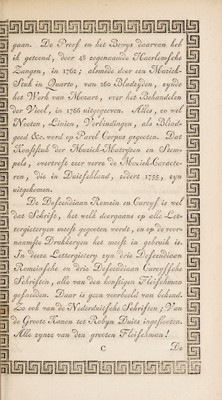 gaan. De Proef en het Bewys daarvan heb
ik getoond, door 48 zogenaamde Haerlemsche
Zangen, in 1762; alsmede door een Muziek-
Stuk in Quarto, van 260 Bladzyden, zynde
het Werk van Mozart, over het Behandelen
der Viool, in 1766 uitgegeeven. Alles, zo wel
Nooten, Linien, Verbindingen, als Blad-
goed &c. werd op Parel Corpus gegooten. Dat
Konststuk der Muziek-Matryzen en Stem-
pels, overtreft zeer verre de Muziek-Caracte-
ren, die in Duitschland, sedert 1755, zyn
uitgekomen.
De Descendiaan Romein en Cursyf is wel
dat Schrift, het welk doorgaans op alle Let-
tergieteryen meest gegooten werdt, en op de voor-
naamste Drukkeryen het meest in gebruik is.
In deeze Lettergietery zyn drie Descendiaan
Romeinsche en drie Descendiaan Cursyfsche
Schriften, alle van den konstigen Fleischman
gesneeden. Daar is geen voorbeeld van bekend.
Zo ook van de Nederduitsche Schriften; Van
de Groote Kanon tot Robyn Duits ingeslooten.
Alle zynze van den grooten Fleischman!
C
De